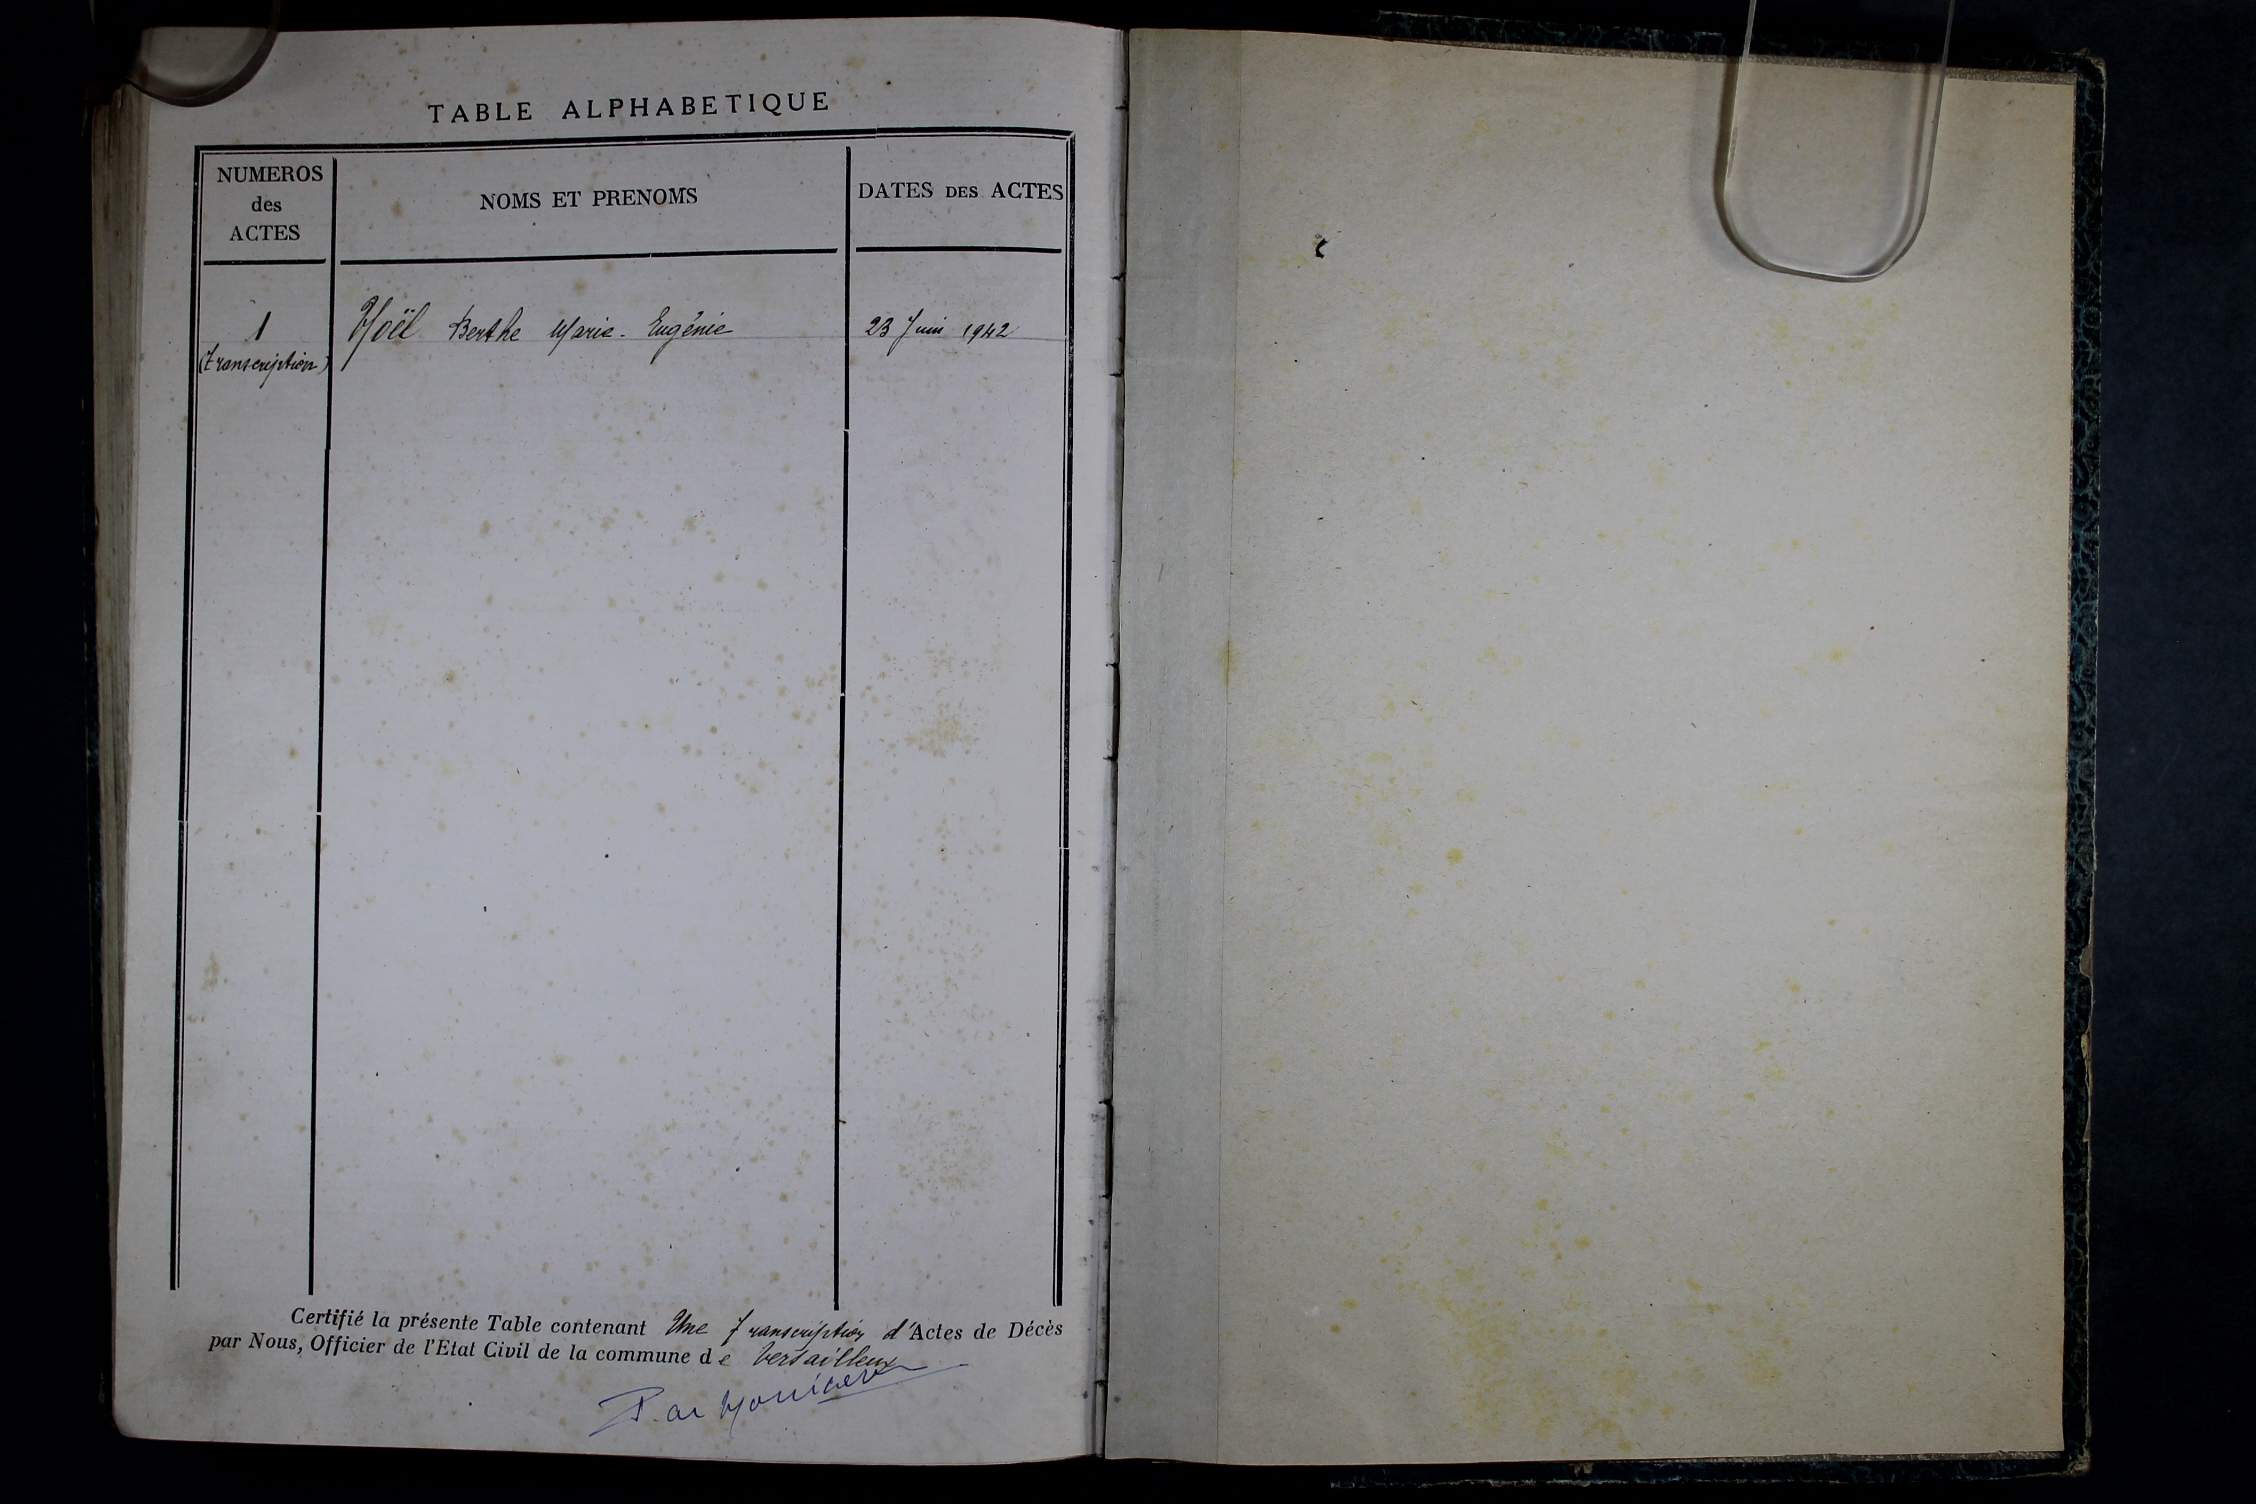 TABLE ALPHABETIQUE
NUMEROS
des
ACTES
NOMS ET PRENOMS
DATES DES ACTES
1
(transcription)
Noël Berthe Marie-Eugénie
23 Juin 1942
Certifié la présente Table contenant Une transcription d'Actes de Décès
par Nous, Officier de l'Etat Civil de la commune de Versailleux